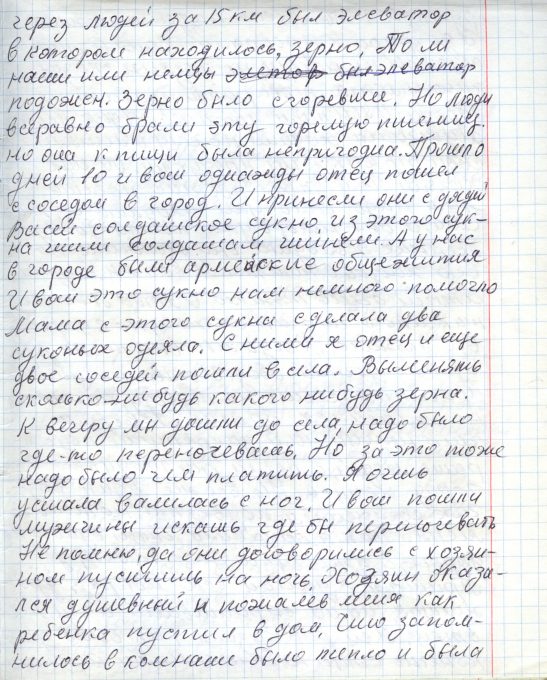 через людей за 15 км был элеватор
в котором находилось, зерно, То ли
наши или немцы элетор был элеватор
подожен. Зерно было сгоревши. Но люди
всеравно брали эту горелую пшениц.
но она к пищи была непригодна. Прошло
дней 10 и вот однажды отец пошел
с соседом в город. И принесли они с дядей
Васей солдатское сукно, из этого сук-
на шили солдатам шинели. А у нас
в городе были армейские общежития
И вот это сукно нам немного помогло
Мама с этого сукна сделала два
суконых одеяла. С ними я отец и еще
двое соседей пошли в села. Выменять
сколько-нибудь какого нибудь зерна.
К вечеру мы дошли до села, надо было
где-то переночевать. Но за это тоже
надо было чем платить. Я очень
устала валилась с ног. И вот пошли
мужчины искать где бы переночевать
Не помню, да они договорились с хозяи-
ном пустить на ночь. Хозяин оказа-
лся душевный и пожалев меня как
ребенка пустил в дом, Что запом-
нилось в комнате было тепло и была